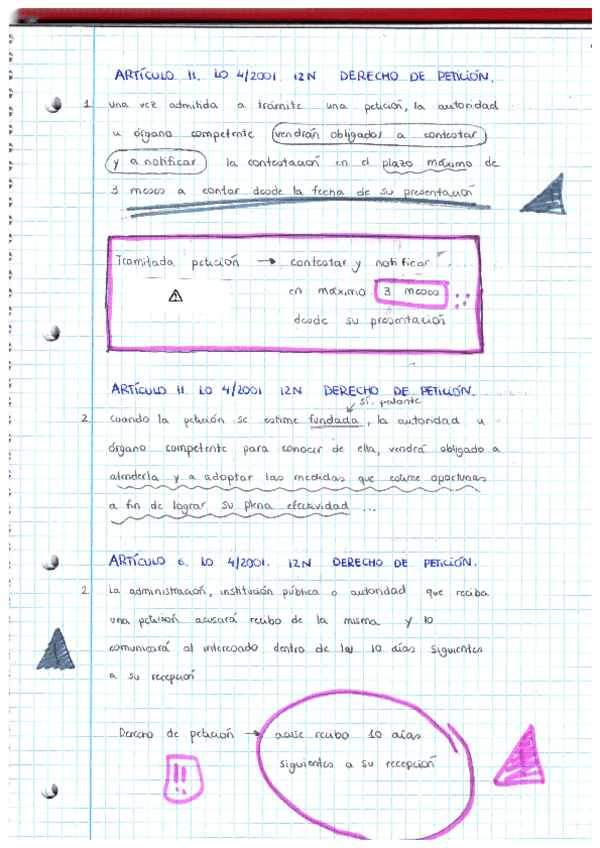 ARTÍCULO 11. LO 4/2001 12N DERECHO DE PETICIÓN.
1. una vez admitida a trámite una petición, la autoridad
u órgano competente vendrán obligados a contestar
y a notificar la contestación en el plazo máximo de
3 meses a contar desde la fecha de su presentación
Tramitada petición → contestar y notificar
en máximo 3 meses
desde su presentación
ARTÍCULO 11. LO 4/2001 12N DERECHO DE PETICIÓN.
sí, palante
2. cuando la petición se estime fundada, la autoridad u
órgano competente para conocer de ella, vendrá obligado a
atenderla y a adoptar las medidas que estime oportunas
a fin de lograr su plena efectividad ...
ARTÍCULO 6. LO 4/2001. 12N DERECHO DE PETICIÓN.
2. La administración, institución pública o autoridad que reciba
una petición acusará recibo de la misma y lo
comunicará al interesado dentro de los 10 días siguientes
a su recepción
Derecho de petición → acuse recibo 10 días
siguientes a su recepción
!!